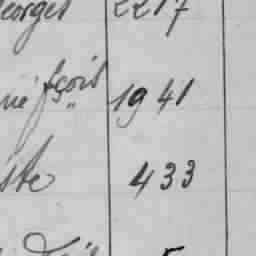 eorges 2217
né fçois 1941
iste 433